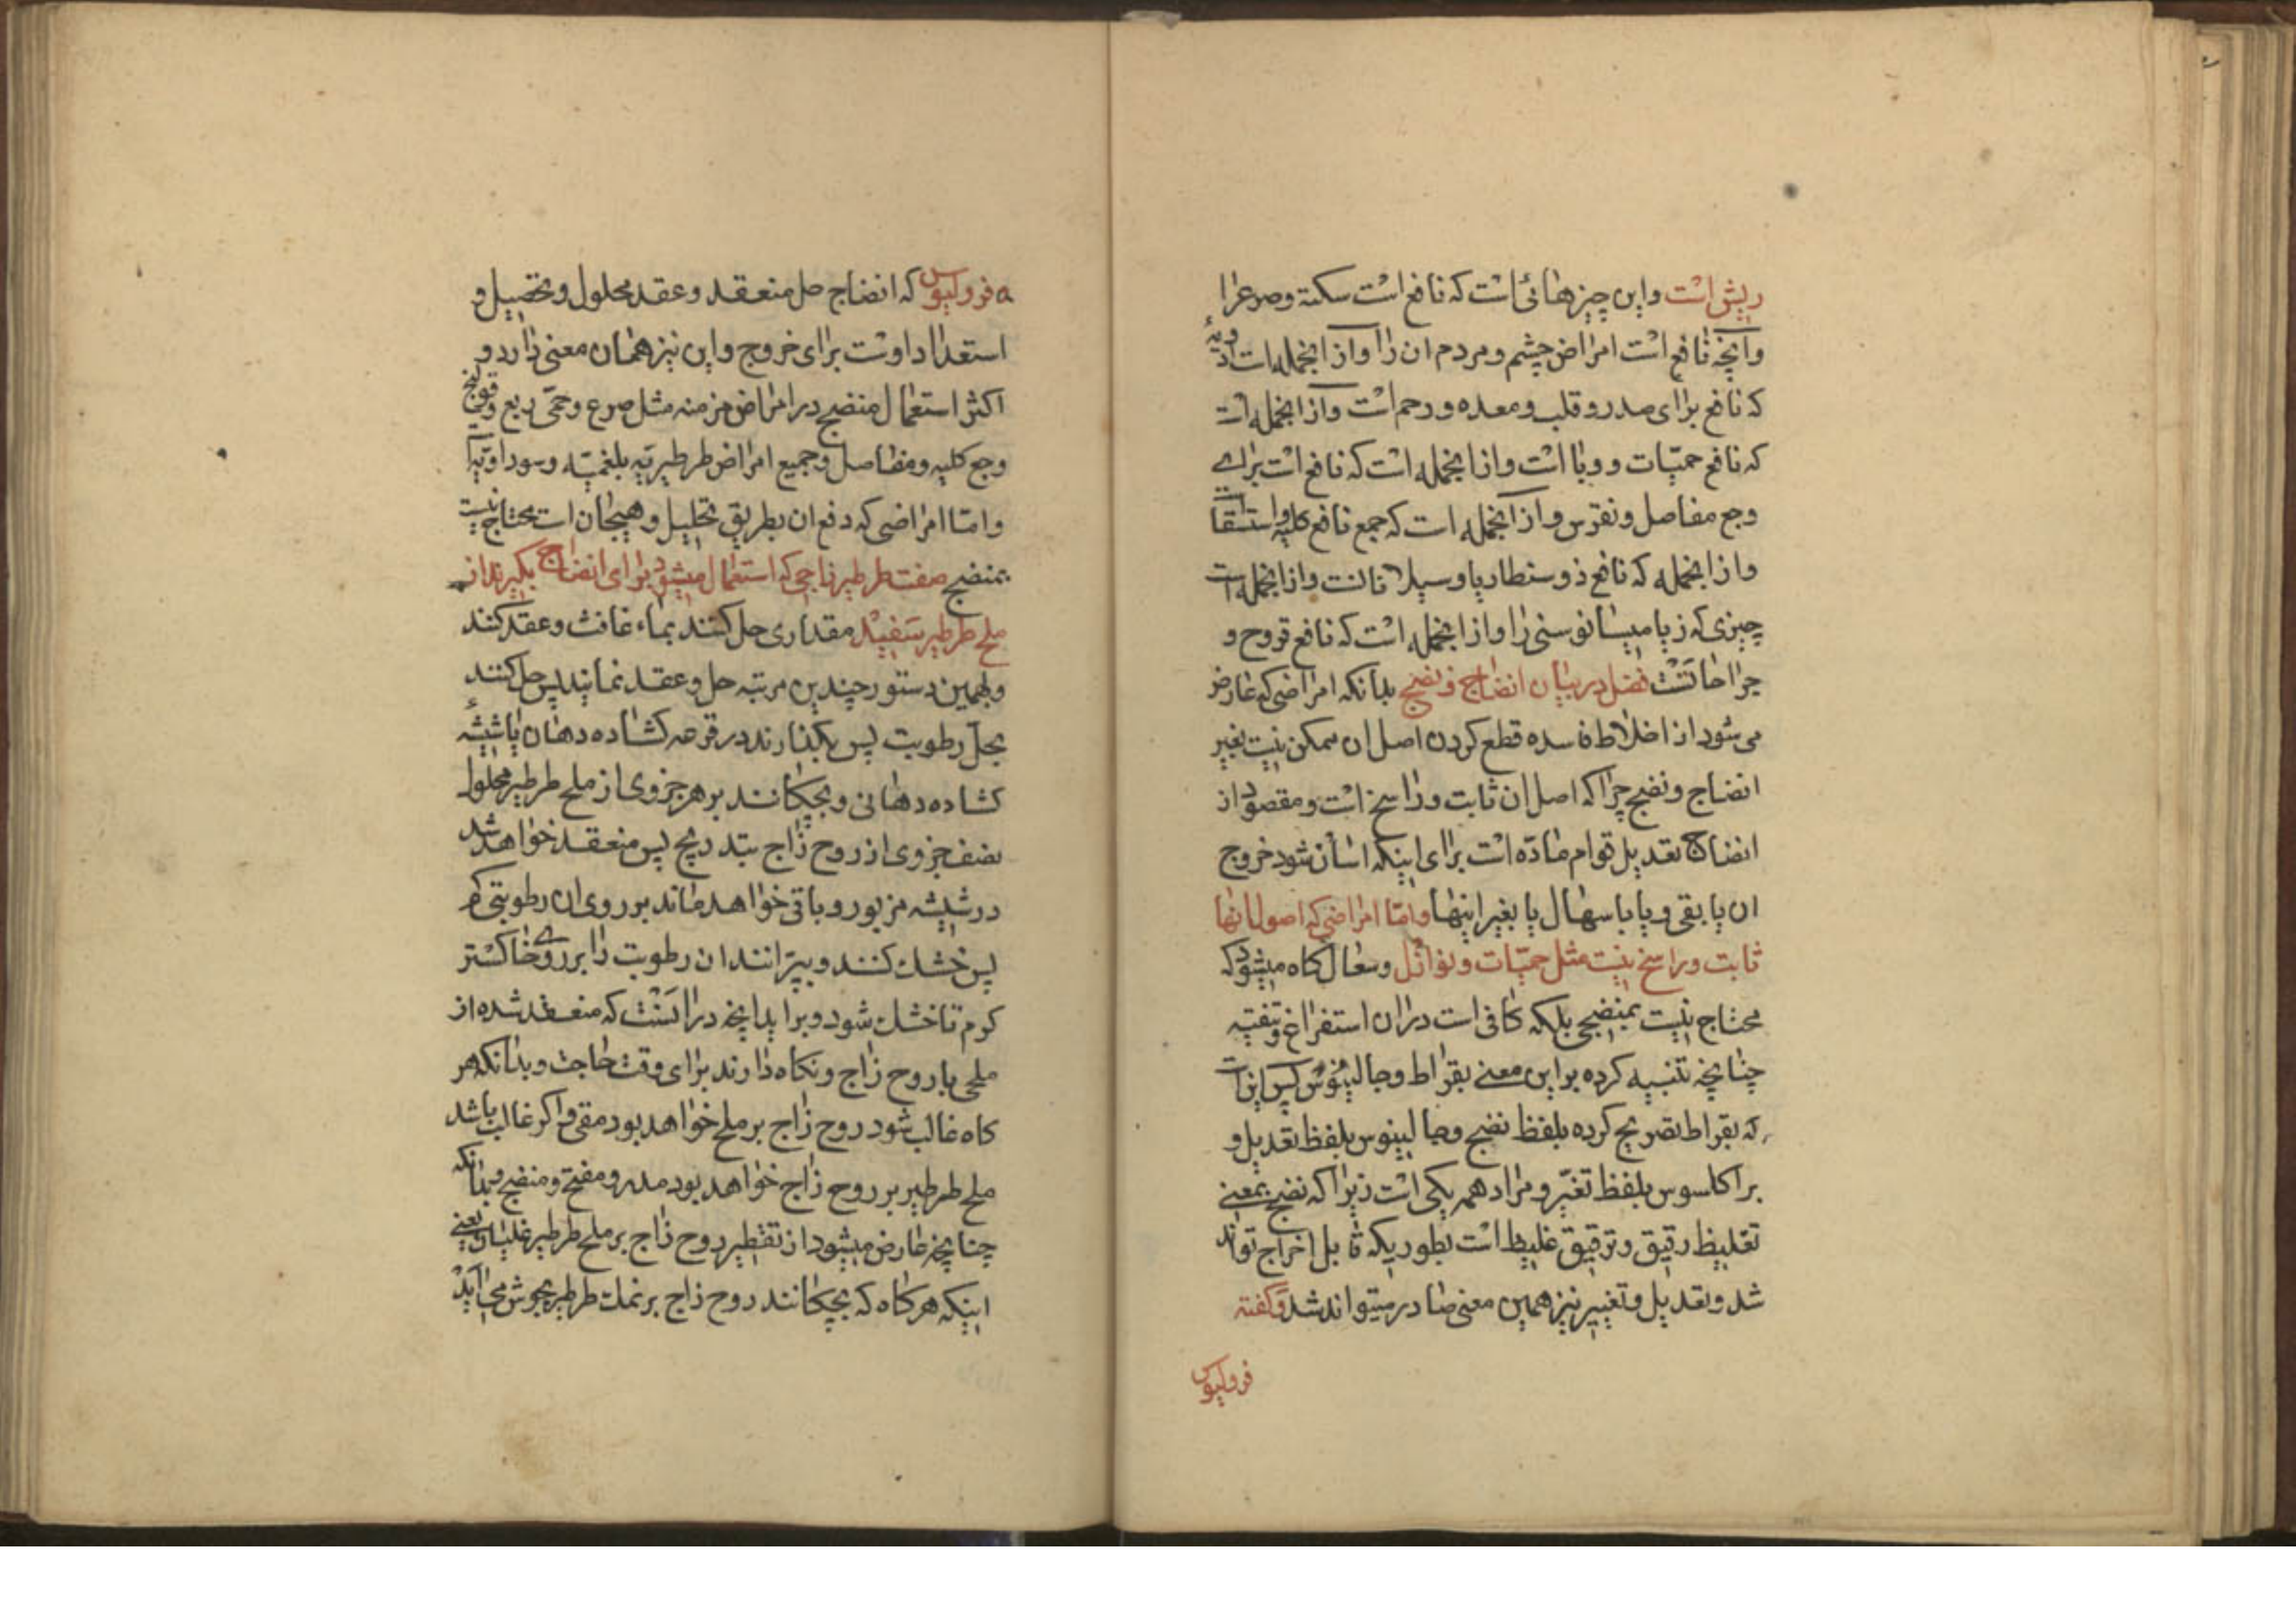 ریش است واین چیزهائی است که نافع است سکته وصرع را
وآنچه نافع است امراض چشم ومردم ان را وازانجمله است ادویهٔ
که نافع برای صدر وقلب ومعده ورحم است وازانجمله است
که نافع حمیّات ووبا است وازانجمله است که نافع است برای
وجع مفاصل ونقرس وازانجمله است که جمع نافع کلیه واستسقا است
وازانجمله که نافع ذوسنطاریا وسیلانات وازانجمله است
چیزی که را وازانجمله است که نافع قروح و
جراحاتست فصل در بیان انضاج ونضج بدانکه امراضی که عارض
می شود از اخلاط فاسده قطع کردن اصل ان ممکن نیست بغیر
انضاج ونضج چرا که اصل ان ثابت وراسخ است ومقصود از
انضاج تعدیل قوام مادّه است برای اینکه اسان شود خروج
ان یا بقی ویا باسهال یا بغیر اینها وامّا امراضی که اصول انها
ثابت وراسخ نیست مثل حمیّات ونوازل وسعال کاه میشود که
محتاج نیست بمنضجی بلکه کافی است دران استفراغ وتنقیه
چنانچه تنبیه کرده براین معنی بقراط وجالینوس پس این است
که بقراط تصریح کرده بلفظ نضج وجالینوس بلفظ تعدیل و
براکلسوس بلفظ تغیّر ومراد همه یکی است زیرا که نضج بمعنی
تغلیظ رقیق وترقیق غلیظ است بطوریکه قابل اخراج تواند
شد وتعدیل وتغییر نیز همین معنی صادر میتواند شد وگفته
فرولیوس
فرولیوس که انضاج حل منعقد وعقد محلول وتحصیل و
استعداد اوست برای خروج واین نیز همان معنی دارد و
اکثر استعمال منضج در امراض مزمنه مثل صرع وحمّی ربع وقولنج
وجع کلیه ومفاصل وجمیع امراض طرطیریّه بلغمیّه وسوداویّه
وامّا امراضی که دفع ان بطریق تحلیل وهیجان است محتاج نیست
بمنضج صفت طرطیر زاجی که استعمال میشود برای انضاج بگیرند از
ملح طرطیر سفید مقداری حل کنند بماء غافث وعقد کنند
وبهمین دستور چندین مرتبه حل وعقد نمایند پس حل کنند
بحلّ رطوبت پس بکذارند در قرعه کشاده دهان یا شیشهٔ
کشاده دهانی وبچکانند بر هر جزوی از ملح طرطیر محلول
نصف جزوی از روح زاج بتدریج پس منعقد خواهد شد
در شیشه مزبور وباقی خواهد ماند بر روی ان رطوبتی کم
پس خشک کنند وبپرانند ان رطوبت را بر روی خاکستر
کرم تا خشک شود وبراید انچه در انست که منعقد شده از
ملحی با روح زاج ونکاه دارند برای وقت حاجت وبدانکه هر
کاه غالب شود روح زاج بر ملح خواهد بود مقی واکر غالب باشد
ملح طرطیر بر روح زاج خواهد بود مدر ومفتح ومنضج وبدانکه
چنانچه عارض میشود از تقطیر روح زاج بر ملح طرطیر غلیان یعنی
اینکه هرکاه که بچکانند روح زاج بر نمک طرطیر بجوش میاید